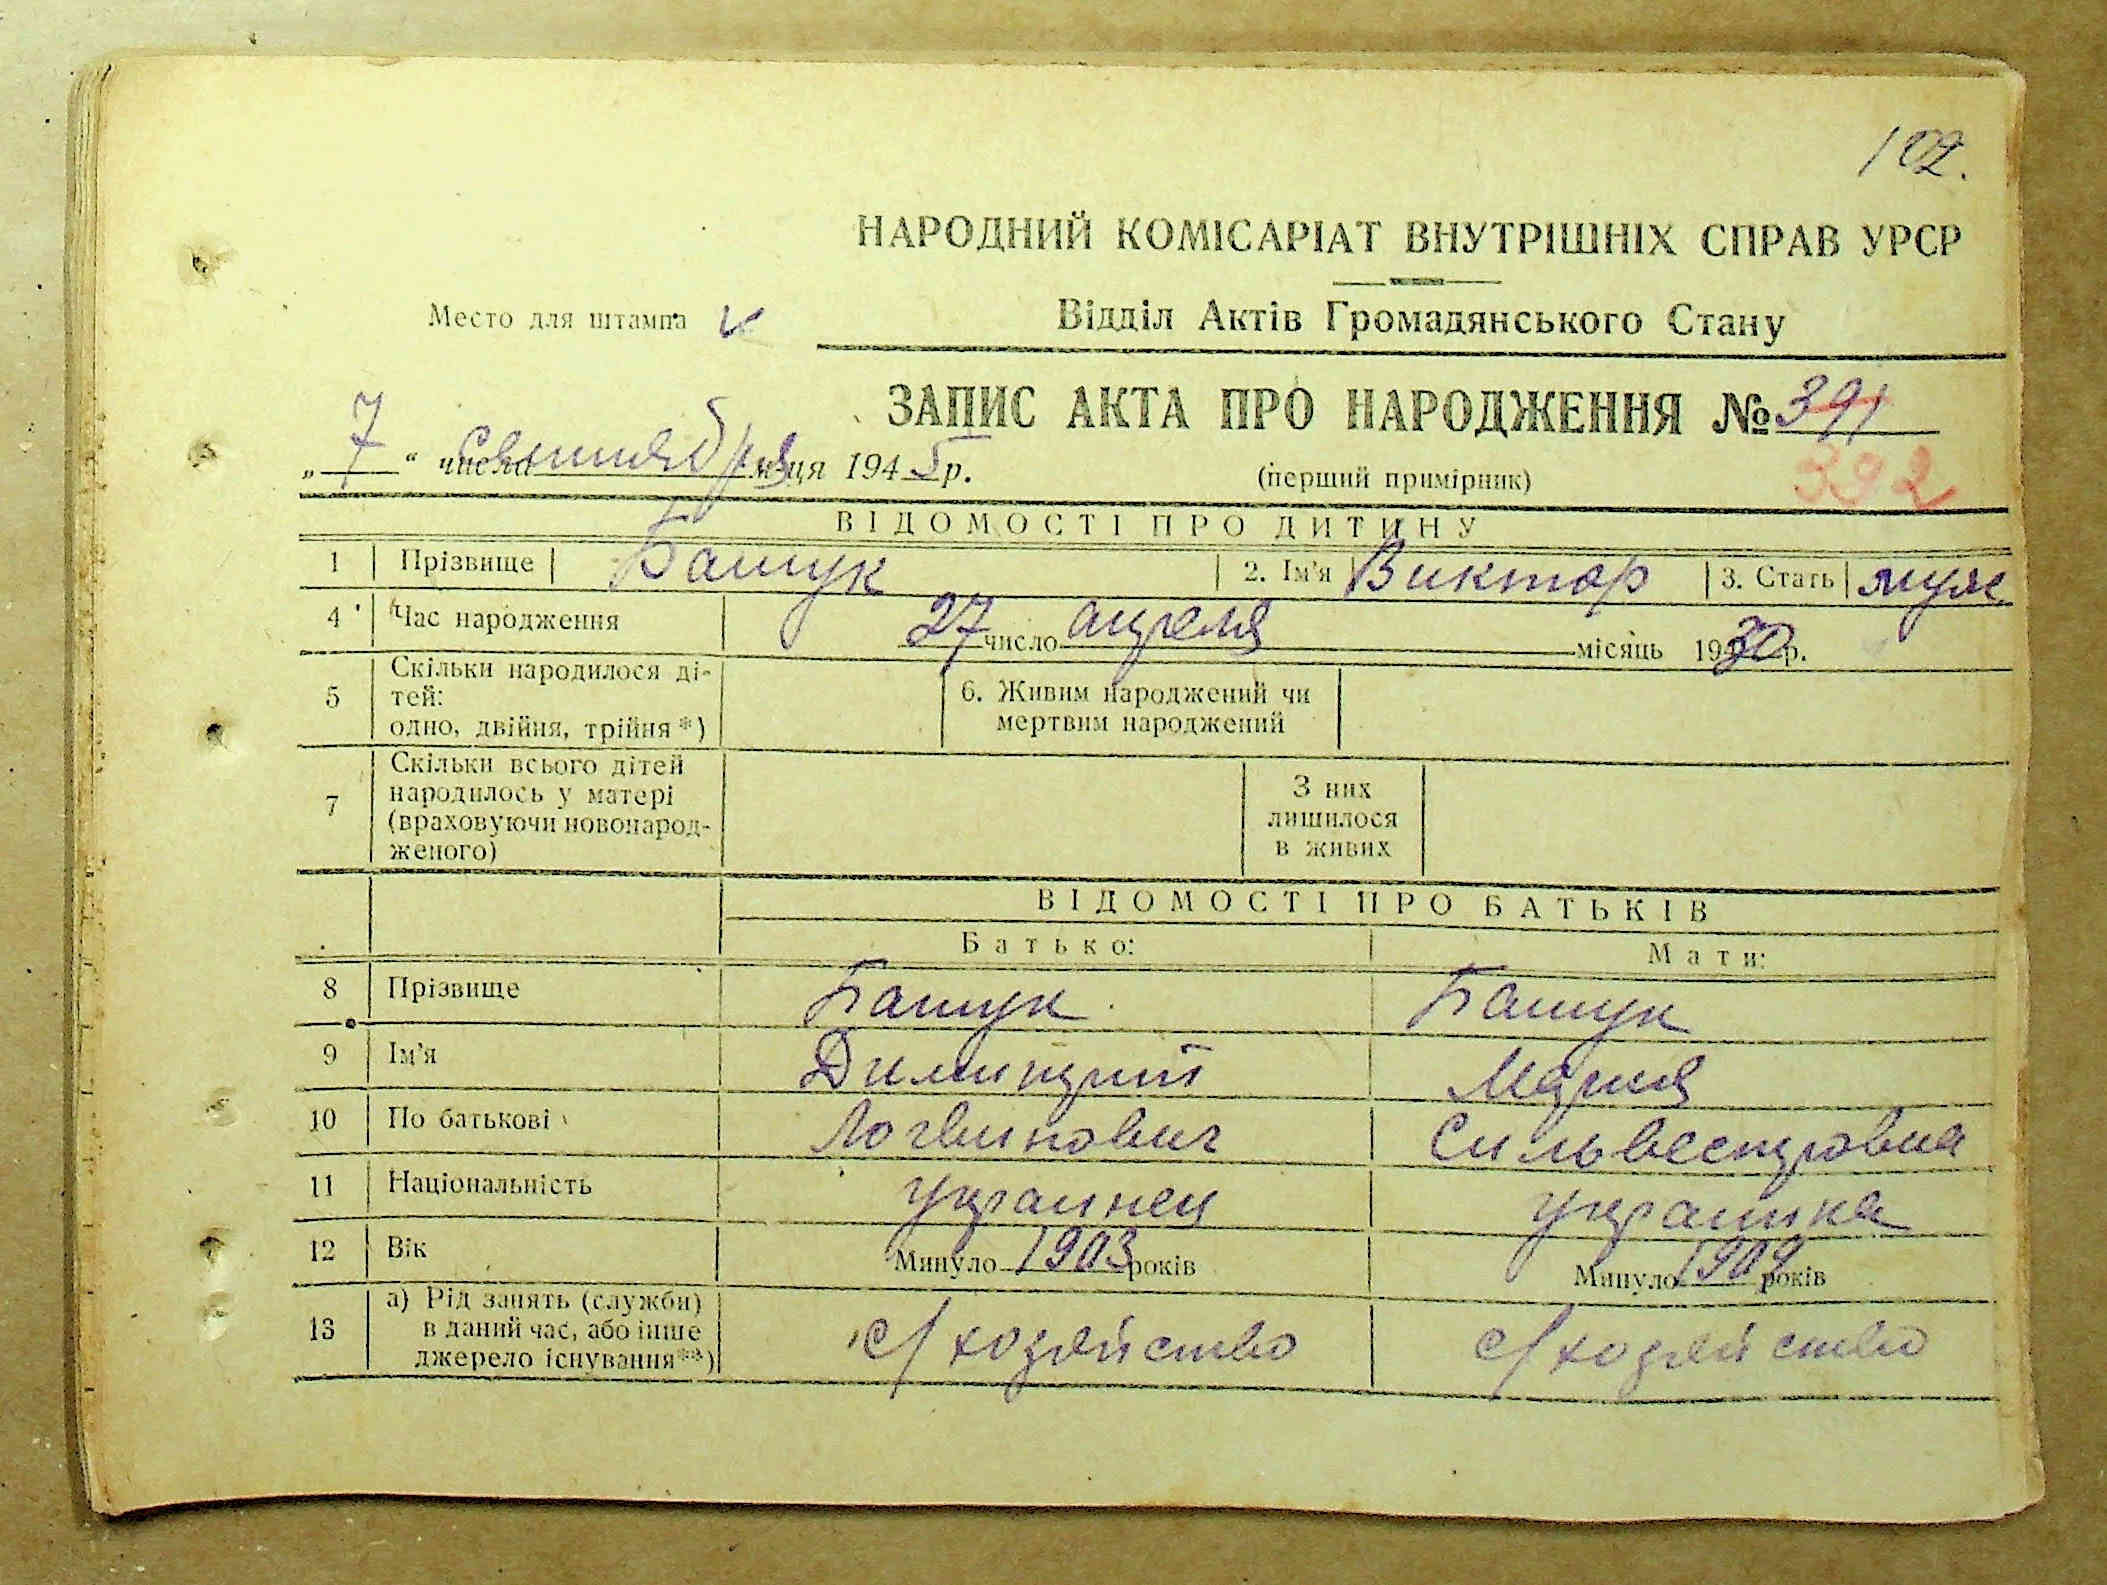 102.
НАРОДНИЙ КОМІСАРІАТ ВНУТРІШНІХ СПРАВ УРСР
Место для штампа
Відділ Актів Громадянського Стану
ЗАПИС АКТА ПРО НАРОДЖЕННЯ № 391
392
„7“ числа сентября м-ця 1945 р.
(перший примірник)
ВІДОМОСТІ ПРО ДИТИНУ
1 Прізвище Башук 2. Ім'я Виктор 3. Стать муж.
4 Час народження 27 число апреля місяць 1930 р.
5 Скільки народилося ді-
тей:
одно, двійня, трійня *)
6. Живим народжений чи
мертвим народжений
7 Скільки всього дітей
народилось у матері
(враховуючи новонарод-
женого)
З них
лишилося
в живих
ВІДОМОСТІ ПРО БАТЬКІВ
Батько: Мати:
8 Прізвище Башук Башук
9 Ім'я Димитрий Мария
10 По батькові Логвинович Сильвестровна
11 Національність украинец украинка
12 Вік Минуло 1903 років Минуло 1909 років
13 а) Рід занять (служби)
в даний час, або інше
джерело існування**)
с/хозяйство с/хозяйство